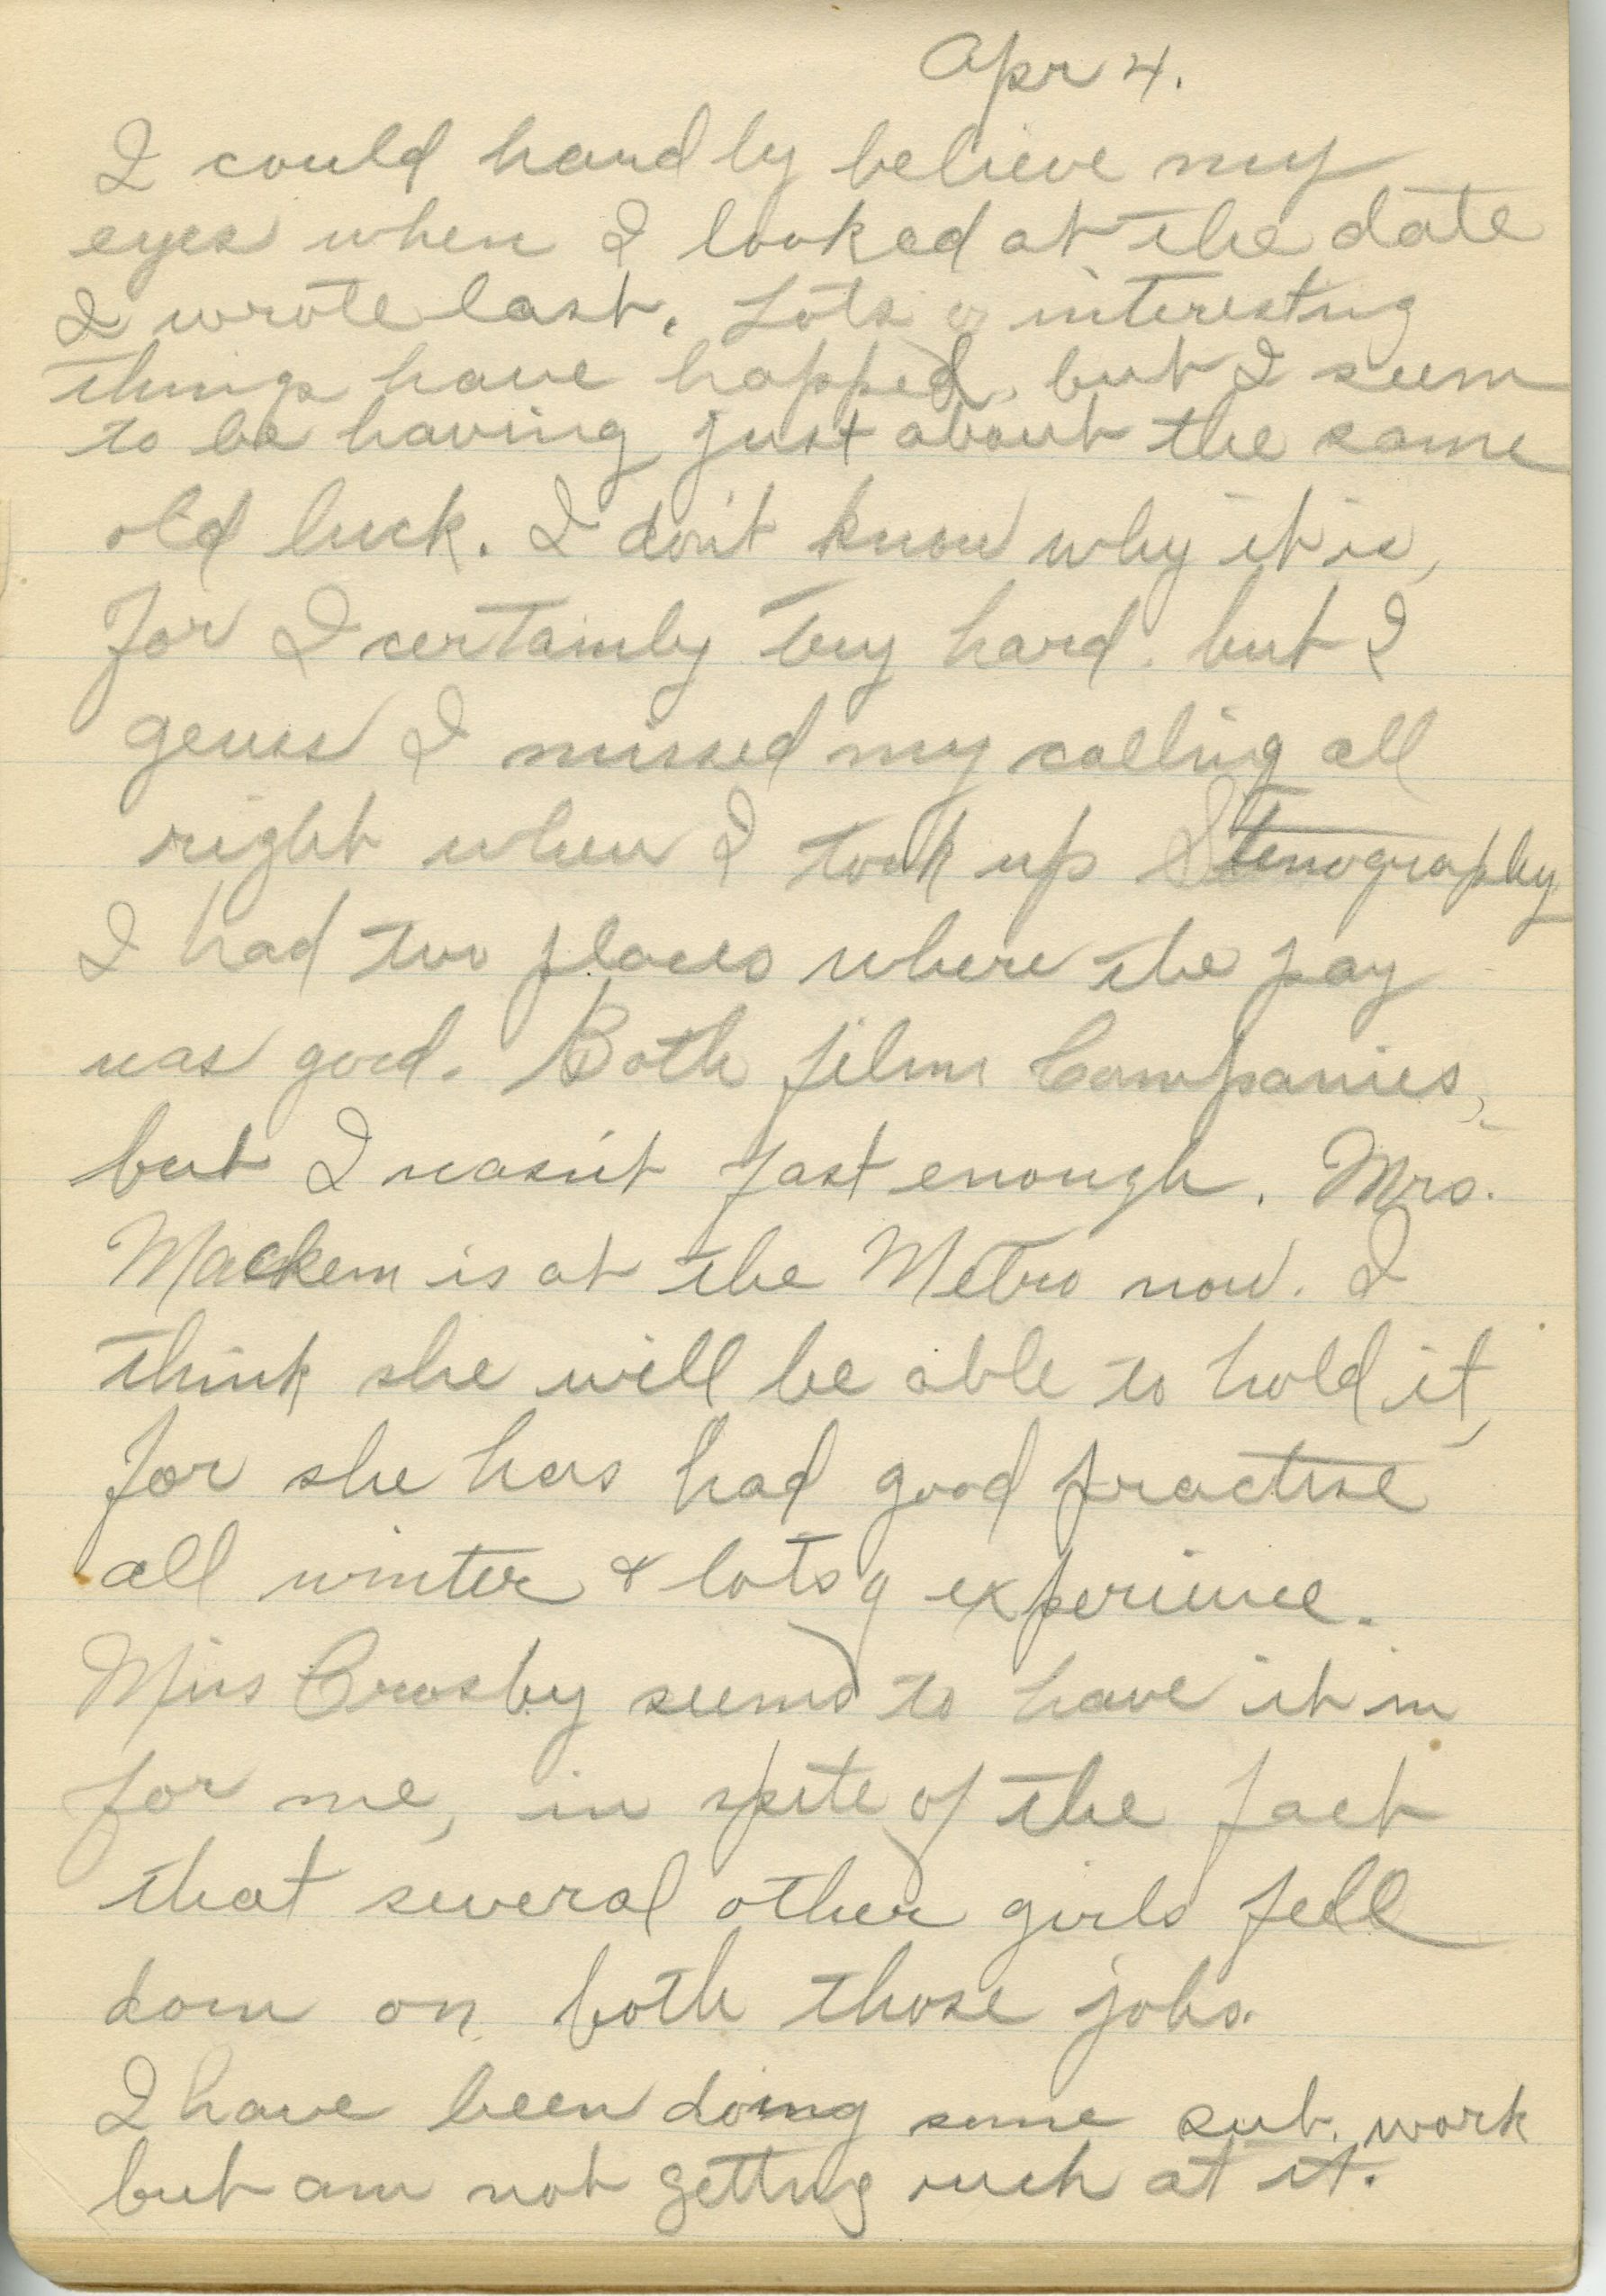 Apr 4.
I could hardly believe my
eyes when I looked at the date
I wrote last. Lots of interesting
things have happed, but I seem
to be having just about the same
old luck. I don't know why it is,
for I certainly try hard. but I
geuss I missed my calling all
right when I took up Stenography
I had two places where the pay
was good. Both film Companies,
but I wasn't fast enough. Mrs.
Mackem is at the Metro now. I
think she will be able to hold it,
for she has had good practise
all winter & lots of experience.
Miss Crosby seems to have it in
for me, in spite of the fact
that several other girls fell
down on both those jobs.
I have been doing some sub. work
but am not getting rich at it.